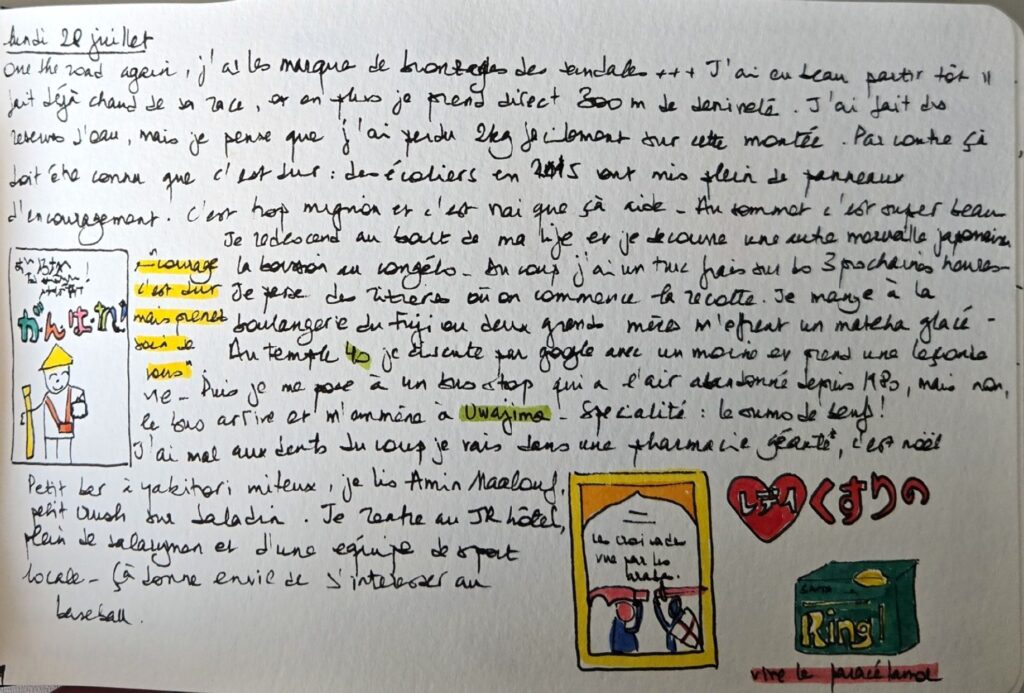 lundi 28 juillet
One the road again, j'ai les marque de bronzages des sandales +++ J'ai eu beau partir tôt il
fait déjà chaud de sa race, et en plus je prend direct 300 m de denivelé. J'ai fait des
reserves d'eau, mais je pense que j'ai perdu 2kg facilement sur cette montée. Par contre çà
doit être connu que c'est dur : des écoliers en 2015 ont mis plein de panneaux
d'encouragement. C'est trop mignon et c'est vrai que çà aide - Au sommet c'est super beau
Je redescend au bout de ma life et je decouvre une autre merveille japonaise
la boisson au congélo - Du coup j'ai un truc frais sur les 3 prochaines heures -
Je passe des rizières où on commence la récolte. Je mange à la
boulangerie du Fuji ou deux grands mères m'offrent un matcha glacé -
Au temple 40 je discute par google avec un moine et prend une leçon de
vie - Puis je me pose à un bus stop qui a l'air abandonné depuis 1980, mais non,
le bus arrive et m'emmène à Uwajima - Spécialité : le sumo de bœuf !
J'ai mal aux dents du coup je vais dans une pharmacie géante*, c'est noël
Petit bar à yakitori miteux, je lis Amin Maalouf,
petit crush sur Saladin. Je rentre au JR hôtel,
plein de salaryman et d'une equipe de sport
locale - Çà donne envie de s'interesser au
baseball.
が・んば・れ
"courage
c'est dur
mais prenez
soin de
vous"
les croisades
vue par les
arabes.
レデイ くすりの
Ring!
vive le paracétamol